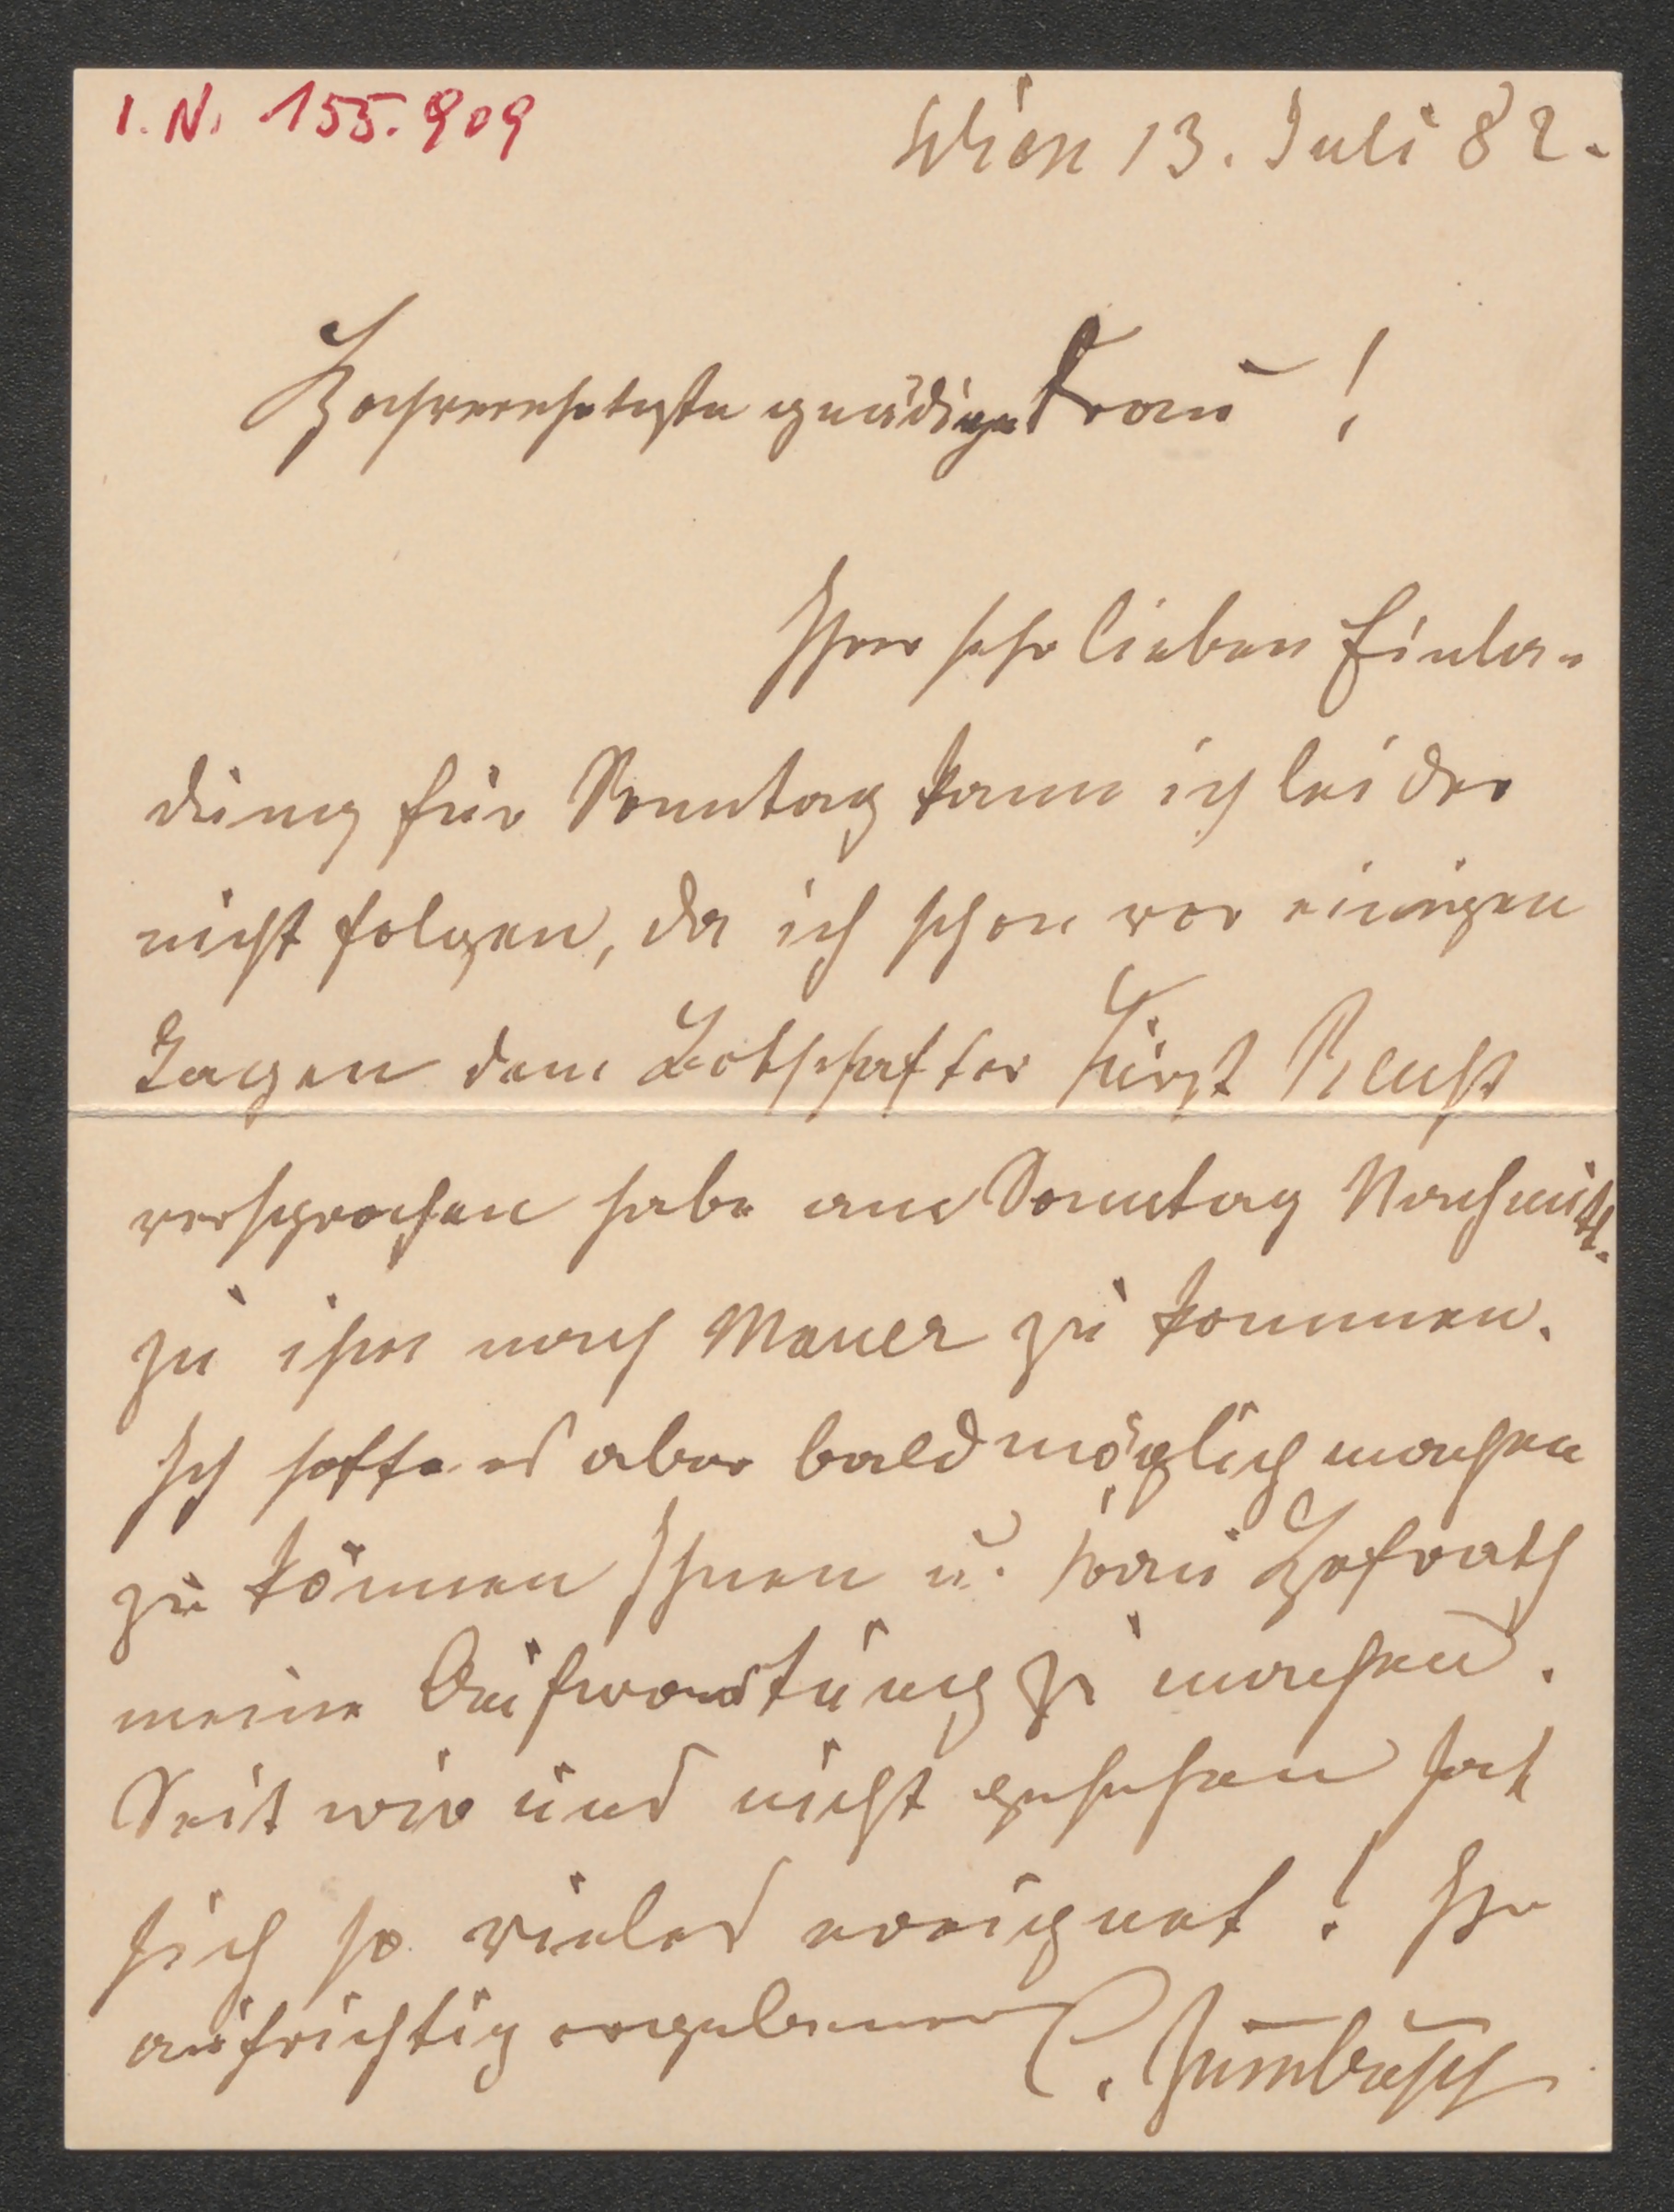 I. N. 155.909
Wien 13. Juli 82.
Hochverehrteste gnädige Frau!
Ihrer sehr lieben Einla-
dung für Sonntag kann ich leider
nicht folgen, da ich schon vor einigen
Tagen dem Botschafter Fürst Reuß
versprochen habe am Sonntag Nachmitt.
zu ihm nach Mauer zu kommen.
Ich hoffe es aber bald möglich machen
zu können Ihnen u. Frau Hofrath
meine Aufwartung zu machen.
Seit wir uns nicht gesehen hat
sich so vieles ereignet! Ihr
aufrichtig ergebener C. Zumbusch